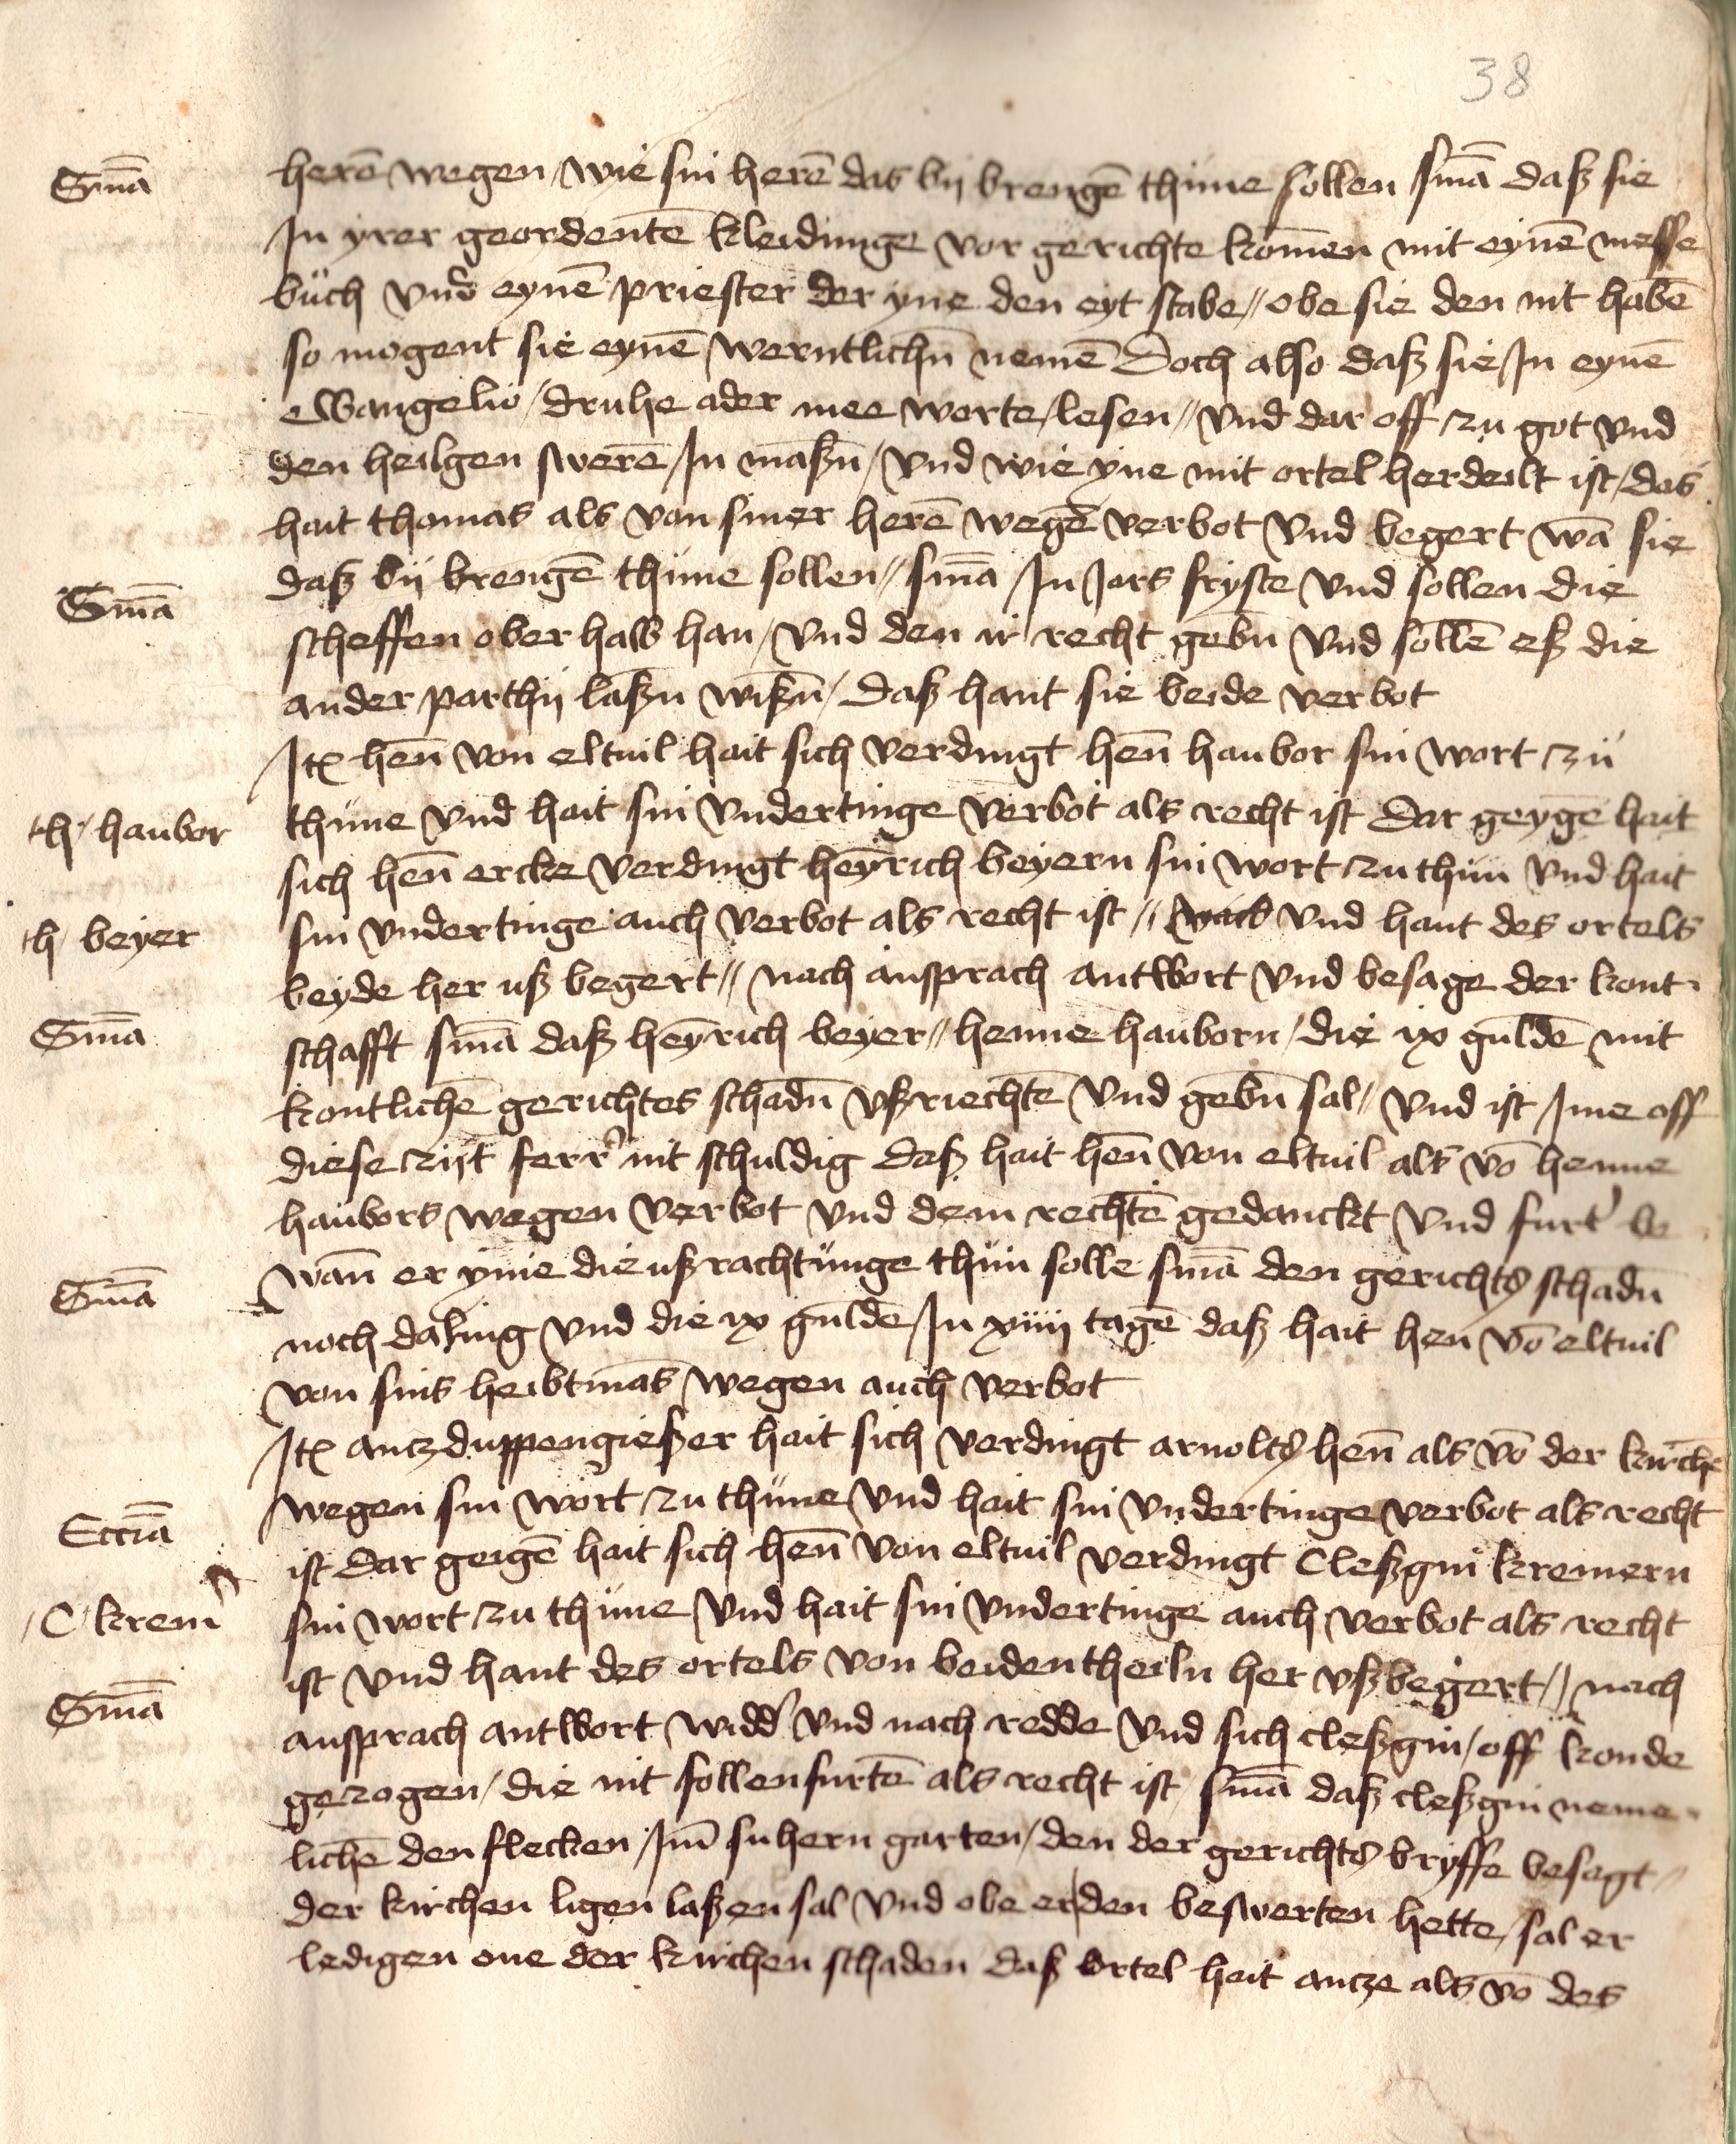 38
Sn̄ia herē wegen wie sin herē das bij brengē thune sollen sn̄ia daß sie
In yrer geordentē kleidunge vor gerichte komen mit eynē messe
buch vnd eynē priester der yne den eyt stabe // obe sie den nit habē
so mogent sie eynē werntlichn̄ nemē Doch also daß sie In eynē
ewangelio / druhe ader mee worte / lesen // vnd dar off zu got vnd
den heilgen swerē / In maßn̄ / vnd wie yne mit ortel herdeilt ist / das
hait thomas als von siner herē wegē verbot vnd begert wā sie
Sn̄ia daß bij brengē thune sollen // sn̄ia In Jars fryste vnd sollen die
scheffen ober halb han / vnd den ir recht gebn̄ vnd sollē eß die
ander parthij laßn̄ wißn̄ / daß hant sie beide verbot
Itē hen̄ von eltuil hait sich verdingt hen̄ haubor sin wort zu
h / haubor thune vnd hait sin vndertinge verbot als recht ist Dar geygē hait
sich hen̄ ercke verdingt heyn̄rich beyern sin wort zu thun vnd hait
h / beyer sin vndertinge auch verbot als recht ist // vnd hant des ortels
beyde her uß begert // nach ansprach antwort vnd besage der kont
Sn̄ia schafft sn̄ia daß heyn̄rich beyer // henne hauborn / die ix guldē mit
kontlichē gerichtes schadn̄ vßriechtē vnd gebn̄ sal // vnd ist Ime off
diese zijt ferr' nit schuldig daß hait hen̄ von eltuil als vō henne
haubors wegen verbot vnd dem rechtē gedanckt vnd furt' be
Sn̄ia wan̄ er yme die ußrachtunge thun solle sn̄ia den gerichts schadn̄
noch daling vnd die ix guldē / In xiiij tagē daß hait hen vō eltuil
von sins heibtmās wegen auch verbot
Itē antz duppengießer hait sich verdingt arnolts hen̄ als vō der kirchē
Eccīa wegen sin wort zu thune vnd hait sin vndertinge verbot als recht
ist dar geigē hait sich hen̄ von eltuil verdingt Cleßgin kremern
C / krem' sin wort zu thune vnd hait sin vndertinge auch verbot als recht
ist vnd hant des ortels von beiden theiln her vß begert // nach
Sn̄ia ansprach antwort widd' vnd nach redde vnd sich cleßgin / off konde
gezogen / die nit follenfurtē als recht ist / sn̄ia daß cleßgin neme
lichē den flecken / Im̄ suhern garten / den der gerichts bryffe besagt
der kirchen ligen laßen sal vnd obe er den beswerten hette / sal er
ledigen one der kirchen schaden daß ortel hait antze als vō des